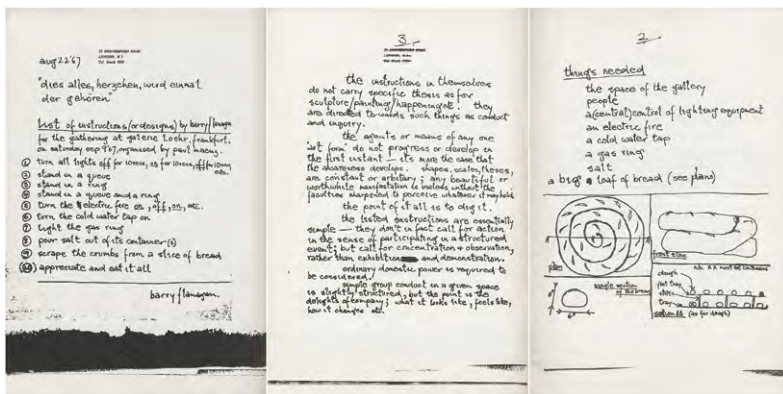 aug 22 '67
"dies alles, herzchen, wird einmal
der gehören"
list of instructions (or designs) by barry flanagan
for the gathering at galerie loehr, frankfurt.
on saturday sep 9 '67, organised by paul maenz.
① turn all lights off for 10 secs, on for 10 secs, off for 10 secs, etc.
② stand in a queue
③ stand in a ring
④ stand in a queue and a ring
⑤ turn the electric fire on, off, on, etc.
⑥ turn the cold water tap on
⑦ light the gas ring
⑧ pour salt out of its container(s)
⑨ scrape the crumbs from a slice of bread
⑩ appreciate and eat it all
barry flanagan.
3
the instructions in themselves
do not carry specific thesis as for
sculpture/painting/happening etc. they
are directed towards such things as conduct
and inquiry.
the agents or means of any one
'art form' do not progress or develop in
the first instant – it's more the case that
the awareness develops. shapes, scales, theses,
are constant or arbitrary; any beautiful or
worthwhile manifestation is useless without the
faculties sharpened to perceive whatever it may hold.
the point of it all is to dig it.
the listed instructions are essentially
simple – they don't in fact call for action
in the sense of participating in a structured
event; but call for concentration & observation,
rather than exhibition and demonstration.
ordinary domestic power is required to
be considered.
simple group conduct in a given space
is slightly structured, but the point is the
delights of company; what it looks like, feels like,
how it changes etc.
2
things needed
the space of the gallery
people
a (central) control of lighting equipment
an electric fire
a cold water tap
a gas ring
salt
a big loaf of bread (see plans)
plan
front elev
single section
of the bread
dough
tray
section AA (as for dough)